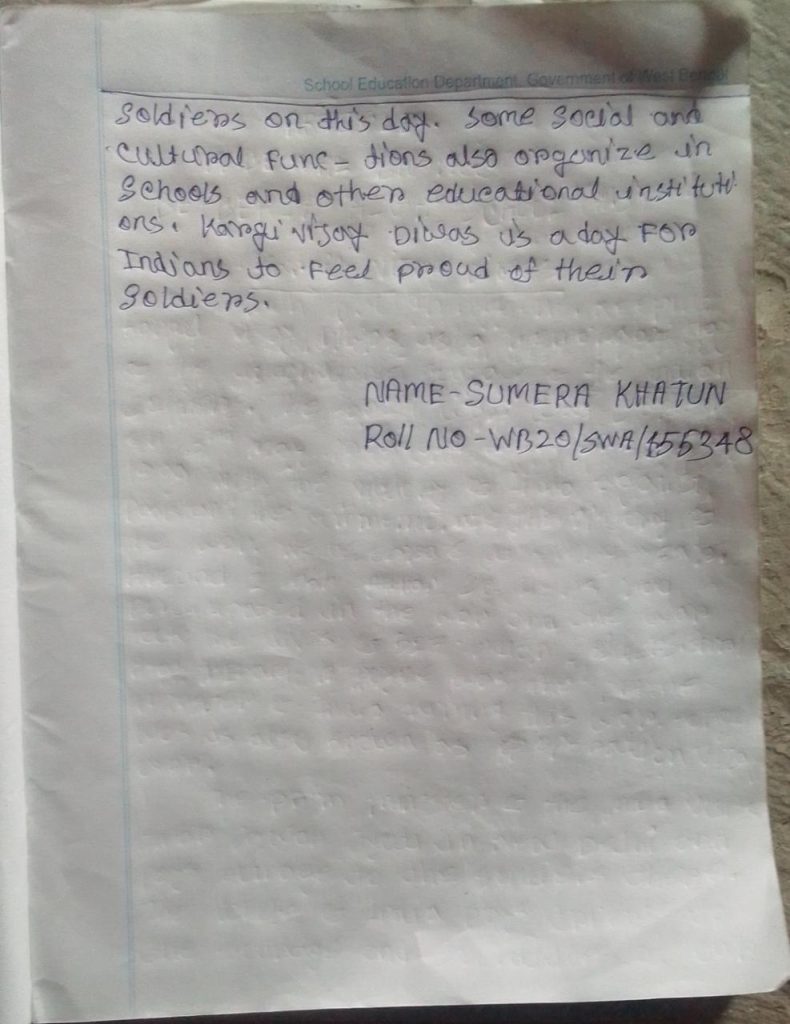 School Education Department, Government of West Bengal
Soldiers on this day. Some Social and
Cultural Func- tions also organize in
Schools and other educational instituti
ons. Kargi vijay Diwas is a day For
Indians to Feel proud of their
Soldiers.
NAME-SUMERA KHATUN
Roll NO-WB20/SWA/155348